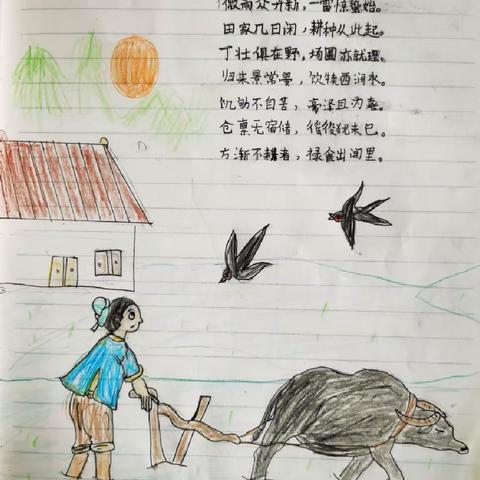 微雨众卉新，一雷惊蛰始。
田家几日闲，耕种从此起。
丁壮俱在野，场圃亦就理。
归来景常晏，饮犊西涧水。
饥劬不自苦，膏泽且为喜。
仓禀无宿储，徭役犹未已。
方渐不耕者，禄食出闾里。